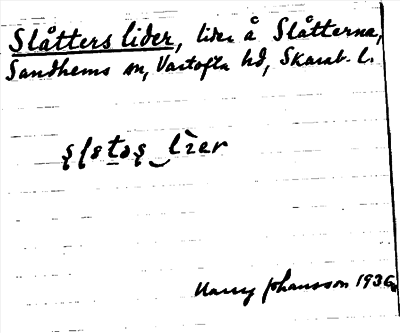 Slåtters lider, lider å Slåtterna,
Sandhems sn, Vartofta hd, Skarab. l.
Harry Johansson 1936